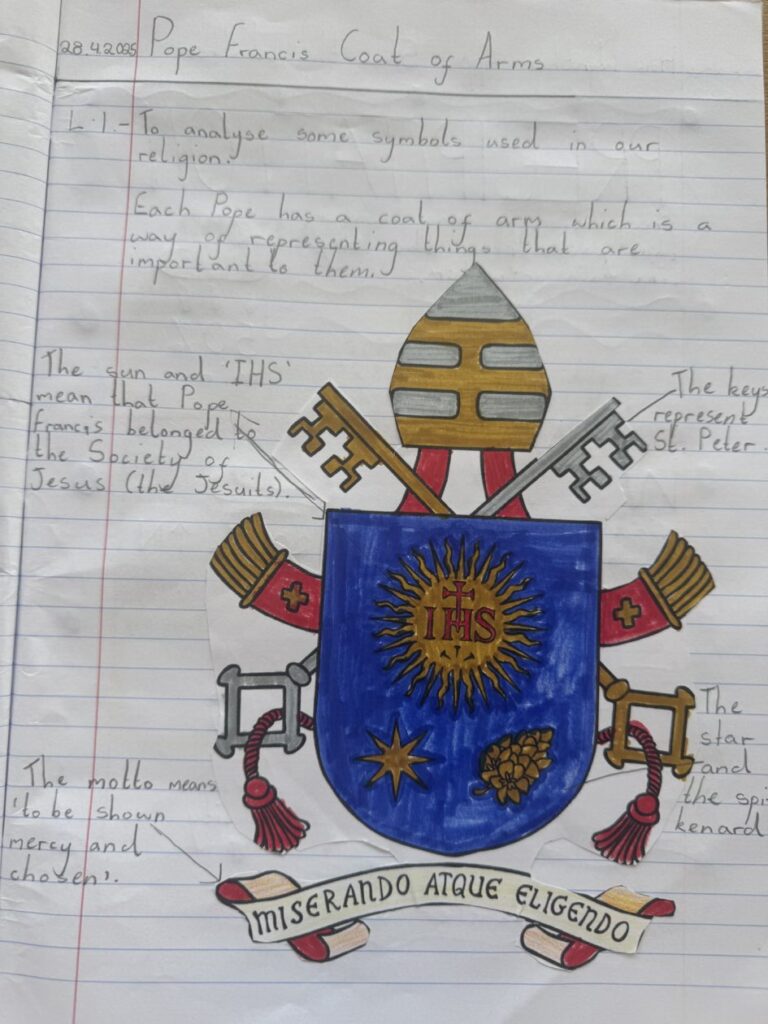 28.4.2025 Pope Francis Coat of Arms
L.I.- To analyse some symbols used in our
religion.
Each Pope has a coat of arm which is a
way of representing things that are
important to them.
The sun and 'IHS'
mean that Pope
Francis belonged to
the Society of
Jesus (the Jesuits).
The keys
represent
St. Peter.
IHS
The
star
and
the spi-
kenard
The motto means
'to be shown
mercy and
chosen'.
MISERANDO ATQUE ELIGENDO